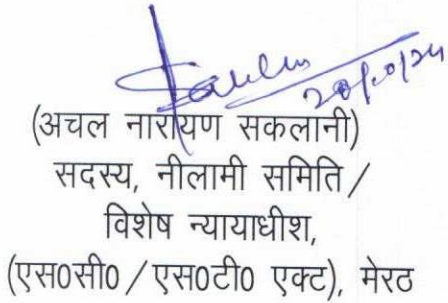 (अचल नारायण सकलानी)
सदस्य, नीलामी समिति /
विशेष न्यायाधीश,
(एस0सी0 / एस0टी0 एक्ट), मेरठ